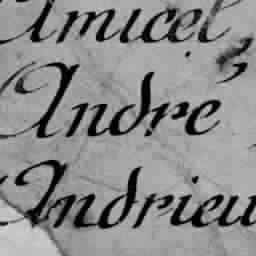 Amicel,
André,
Andrieu